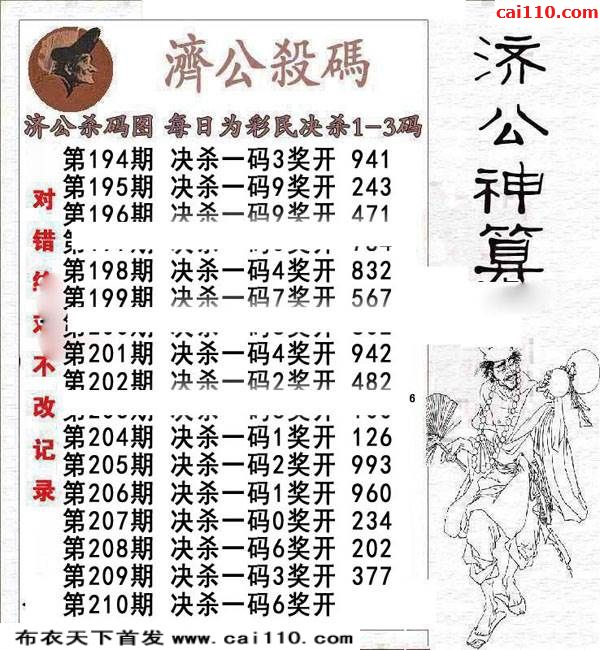 cai110.com
濟公殺碼
济公神算
济公杀码图 每日为彩民决杀1-3码
对错 不改记录
第194期 决杀一码3奖开 941
第195期 决杀一码9奖开 243
第196期 决杀一码9奖开 471
第198期 决杀一码4奖开 832
第199期 决杀一码7奖开 567
第201期 决杀一码4奖开 942
第202期 决杀一码2奖开 482
6
第204期 决杀一码1奖开 126
第205期 决杀一码2奖开 993
第206期 决杀一码1奖开 960
第207期 决杀一码0奖开 234
第208期 决杀一码6奖开 202
第209期 决杀一码3奖开 377
第210期 决杀一码6奖开
布衣天下首发 www.cai110.com